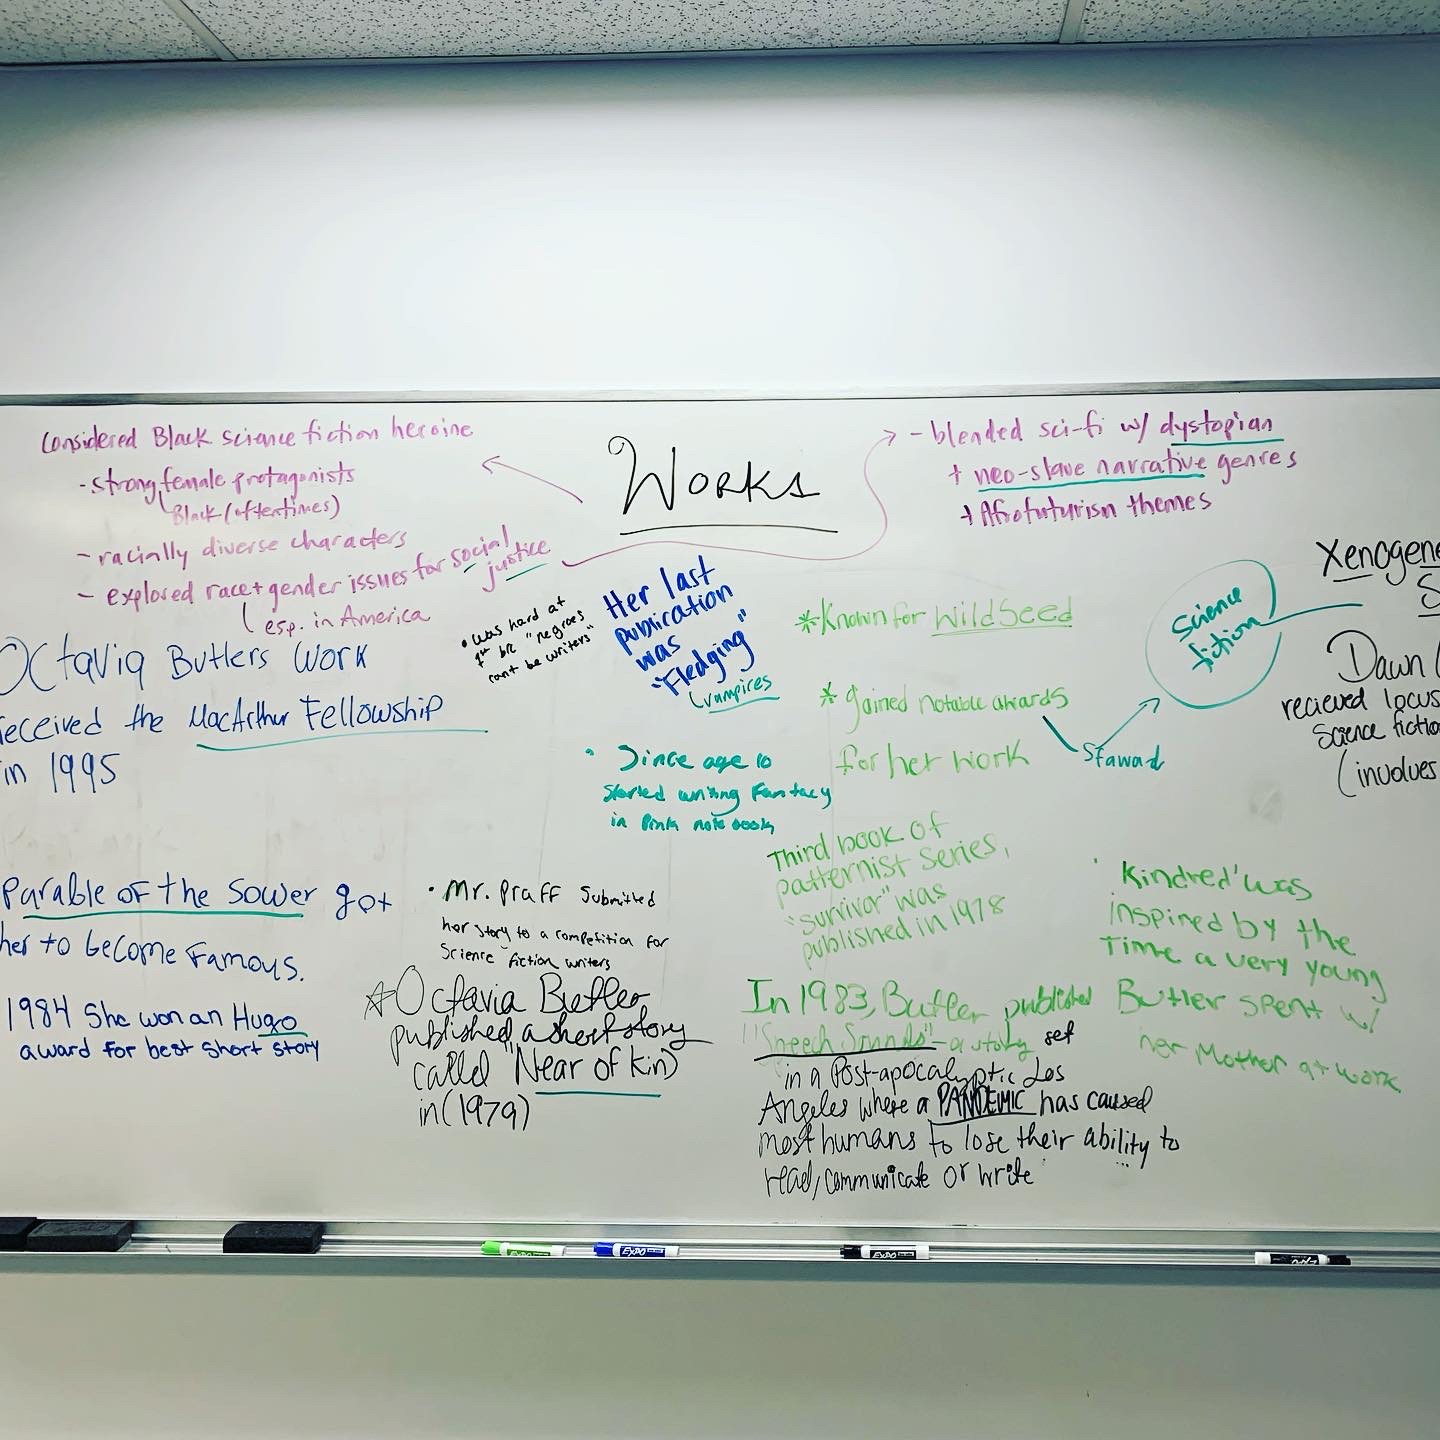 Works
Considered Black science fiction heroine
- strong female protagonists
Black (oftentimes)
- racially diverse characters
- explored race + gender issues for social justice
esp. in America
- blended sci-fi w/ dystopian
+ neo-slave narrative genres
+ Afrofuturism themes
Octavia Butlers Work
received the MacArthur Fellowship
in 1995
• was hard at
1st b/c "negroes
cant be writers"
Her last
publication
was
"Fledging"
(vampires
*Known for WildSeed
* gained notable awards
for her work
Science
fiction
Xenogene
S
Dawn (
recieved locus
Science fictio
(involves
• Since age 10
started writing Fantacy
in Pink note book
Third book of
patternist series,
"survivor" was
published in 1978
• Kindred' was
inspired by the
Time a very young
Butler spent w/
her Mother at work
Parable of the Sower got
her to become Famous.
1984 She won an Hugo
award for best short story
• Mr. Praff Submitted
her story to a competition for
Science fiction writers
☆Octavia Butler
published a short story
called "Near of Kin)
in (1979)
In 1983, Butler published
"Speech Sounds" - a story set
in a Post-apocalyptic Los
Angeles where a PANDEMIC has caused
most humans to lose their ability to
read, communicate or write
EXPO
EXPO
EXPO
EXPO